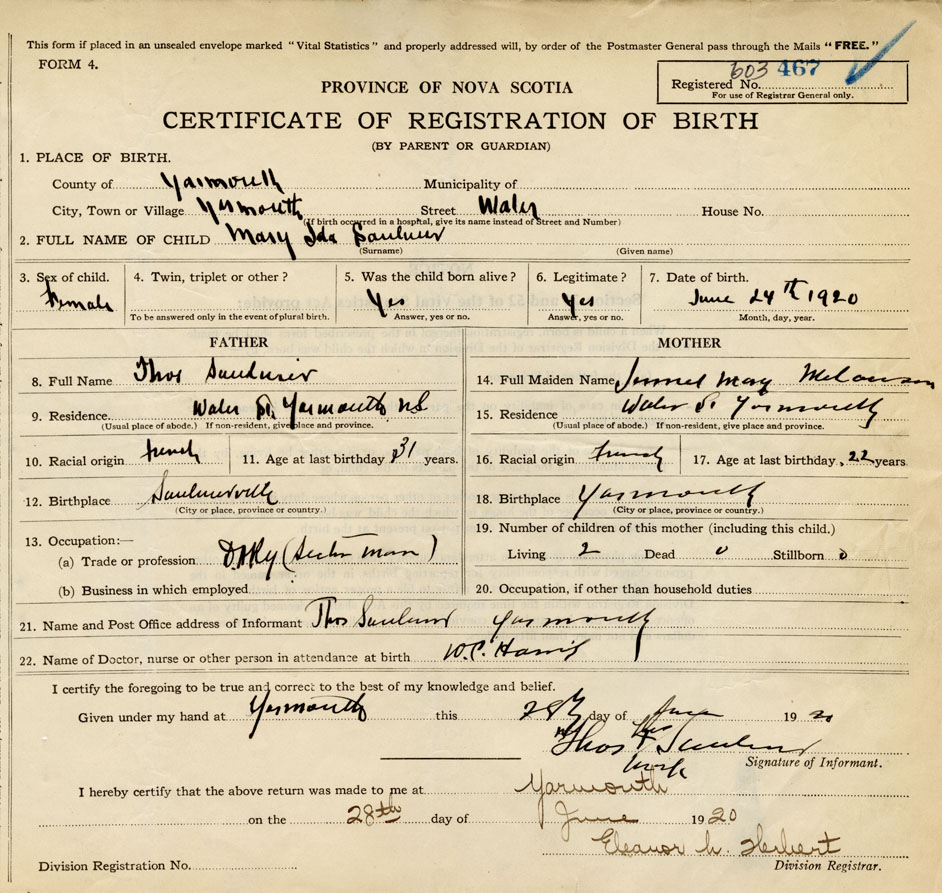 This form if placed in an unsealed envelope marked "Vital Statistics" and properly addressed will, by order of the Postmaster General pass through the Mails "FREE."
FORM 4.
603 467
Registered No.
For use of Registrar General only.
PROVINCE OF NOVA SCOTIA
CERTIFICATE OF REGISTRATION OF BIRTH
(BY PARENT OR GUARDIAN)
1. PLACE OF BIRTH.
County of Yarmouth Municipality of
City, Town or Village Yarmouth Street Water House No.
(If birth occurred in a hospital, give its name instead of Street and Number)
2. FULL NAME OF CHILD Mary Ida Saulnier
(Surname) (Given name)
3. Sex of child. 4. Twin, triplet or other? 5. Was the child born alive? 6. Legitimate? 7. Date of birth.
Female Yes Yes June 24th 1920
To be answered only in the event of plural birth. Answer, yes or no. Answer, yes or no. Month, day, year.
FATHER MOTHER
8. Full Name Thos Saulnier 14. Full Maiden Name May
9. Residence Water St. Yarmouth NS 15. Residence Water St Yarmouth
(Usual place of abode.) If non-resident, give place and province. (Usual place of abode.) If non-resident, give place and province.
10. Racial origin French 11. Age at last birthday 31 years. 16. Racial origin French 17. Age at last birthday 22 years
12. Birthplace Saulnierville 18. Birthplace Yarmouth
(City or place, province or country.) (City or place, province or country.)
13. Occupation:— 19. Number of children of this mother (including this child.)
(a) Trade or profession (Section man) Living 2 Dead 0 Stillborn 0
(b) Business in which employed 20. Occupation, if other than household duties
21. Name and Post Office address of Informant Thos Saulnier Yarmouth
22. Name of Doctor, nurse or other person in attendance at birth W.C. Harris
I certify the foregoing to be true and correct to the best of my knowledge and belief.
Given under my hand at Yarmouth this 28th day of June 1920
his
Thos X Saulnier
mark
Signature of Informant.
I hereby certify that the above return was made to me at Yarmouth
on the 28th day of June 1920
Eleanor h. Herbert
Division Registration No. Division Registrar.